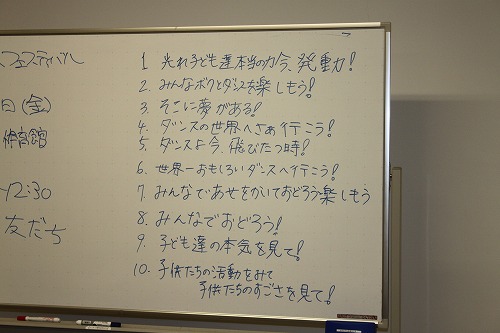 フェスティバル
日(金)
体育館
12:30
友だち
1 光れ子ども達本当の力今、発動力!
2. みんなボクとダンスを楽しもう!
3. そこに夢がある!
4. ダンスの世界へさぁ行こう!
5. ダンスよ今、飛びたつ時!
6. 世界一おもしろいダンスへ行こう!
7. みんなであせをかいておどろう楽しもう
8. みんなでおどろう!
9. 子ども達の本気を見て!
10. 子供たちの活動をみて
子供たちのすごさを見て!